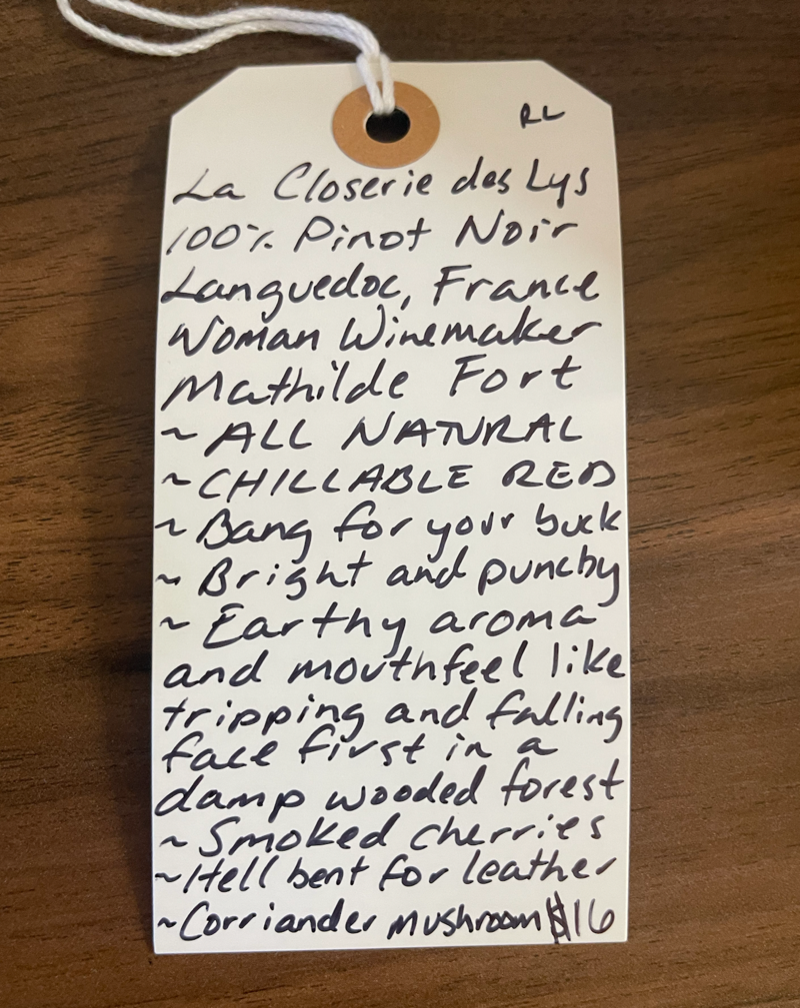 RL
La Closerie des Lys
100% Pinot Noir
Languedoc, France
Woman Winemaker
Mathilde Fort
~ ALL NATURAL
~ CHILLABLE RED
~ Bang for your buck
~ Bright and punchy
~ Earthy aroma
and mouthfeel like
tripping and falling
face first in a
damp wooded forest
~ Smoked cherries
~ Hell bent for leather
~ Corriander mushroom $16